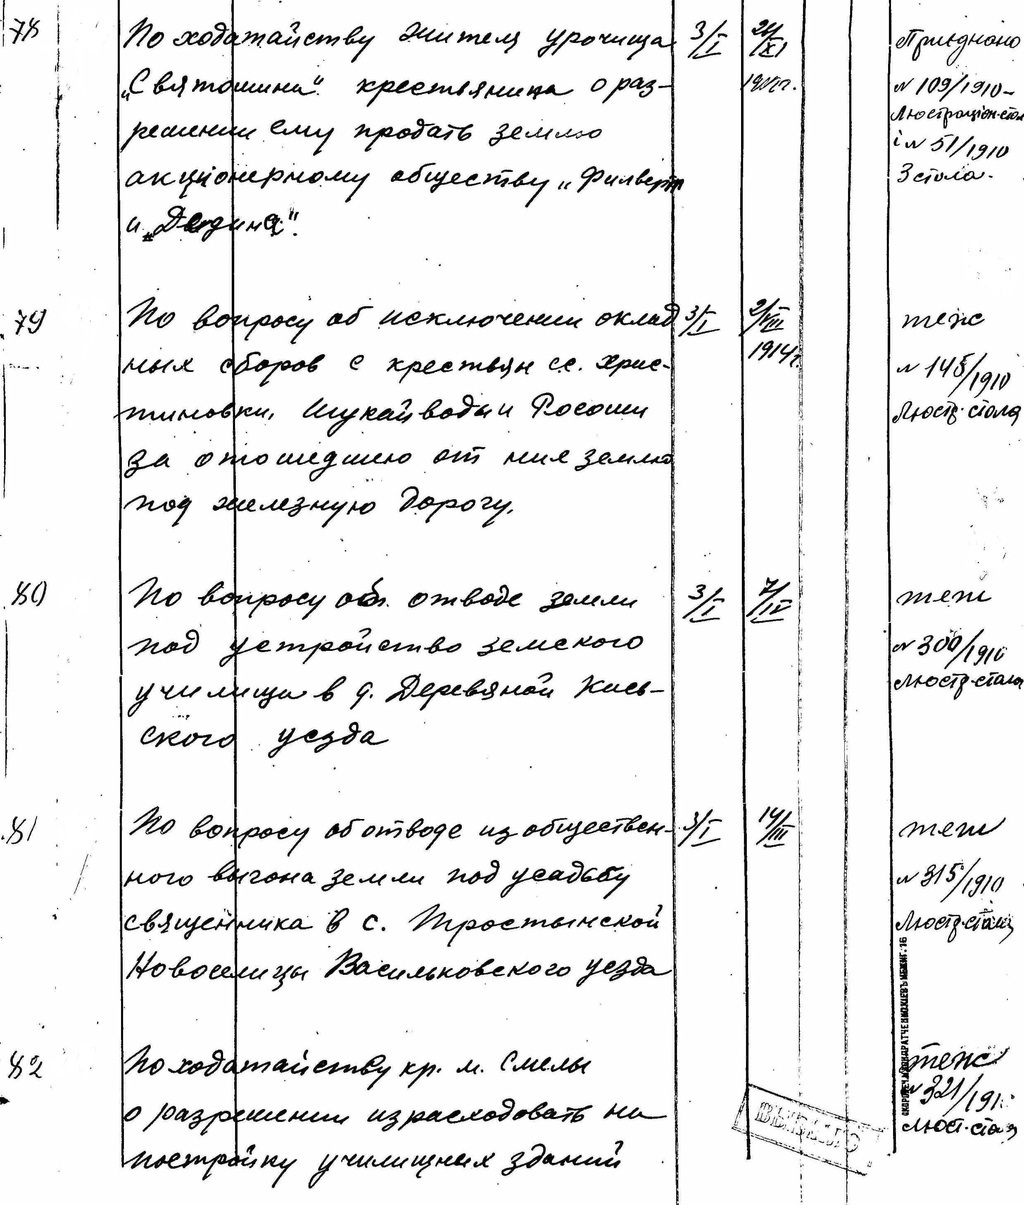 78
По ходатайству жителя урочища
„Святошина" крестьянина о раз-
решении ему продать землю
акционерному обществу „Фильверт
и „Дедина".
3/I
XI
Приєднано
N 109/1910-
Люстраціон. стол
і N 51/1910
3 стола.
79
По вопросу об исключении оклад
ных сборов с крестьян сс. Хрис-
тиновки, Шукайводы и Росоши
за отошедшею от них землю
под железную дорогу.
3/I
2/VIII
1914 г.
теж
N 145/1910
Люстр. стола
80
По вопросу об отводе земли
под устройство земского
училища в д. Деревяной Киев-
ского уезда
3/I
7/IV
теж
N 300/1910
Люстр. стола
81
По вопросу об отводе из обществен-
ного выгона земли под усадьбу
священника в с. Тростынской
Новоселицы Васильковского уезда
3/I
14/III
теж
N 315/1910
Люстр. стола
82
По ходатайству кр. м. Смелы
о разрешении израсходовать на
постройку училищных зданий
теж
N 321/191
Люст. стола